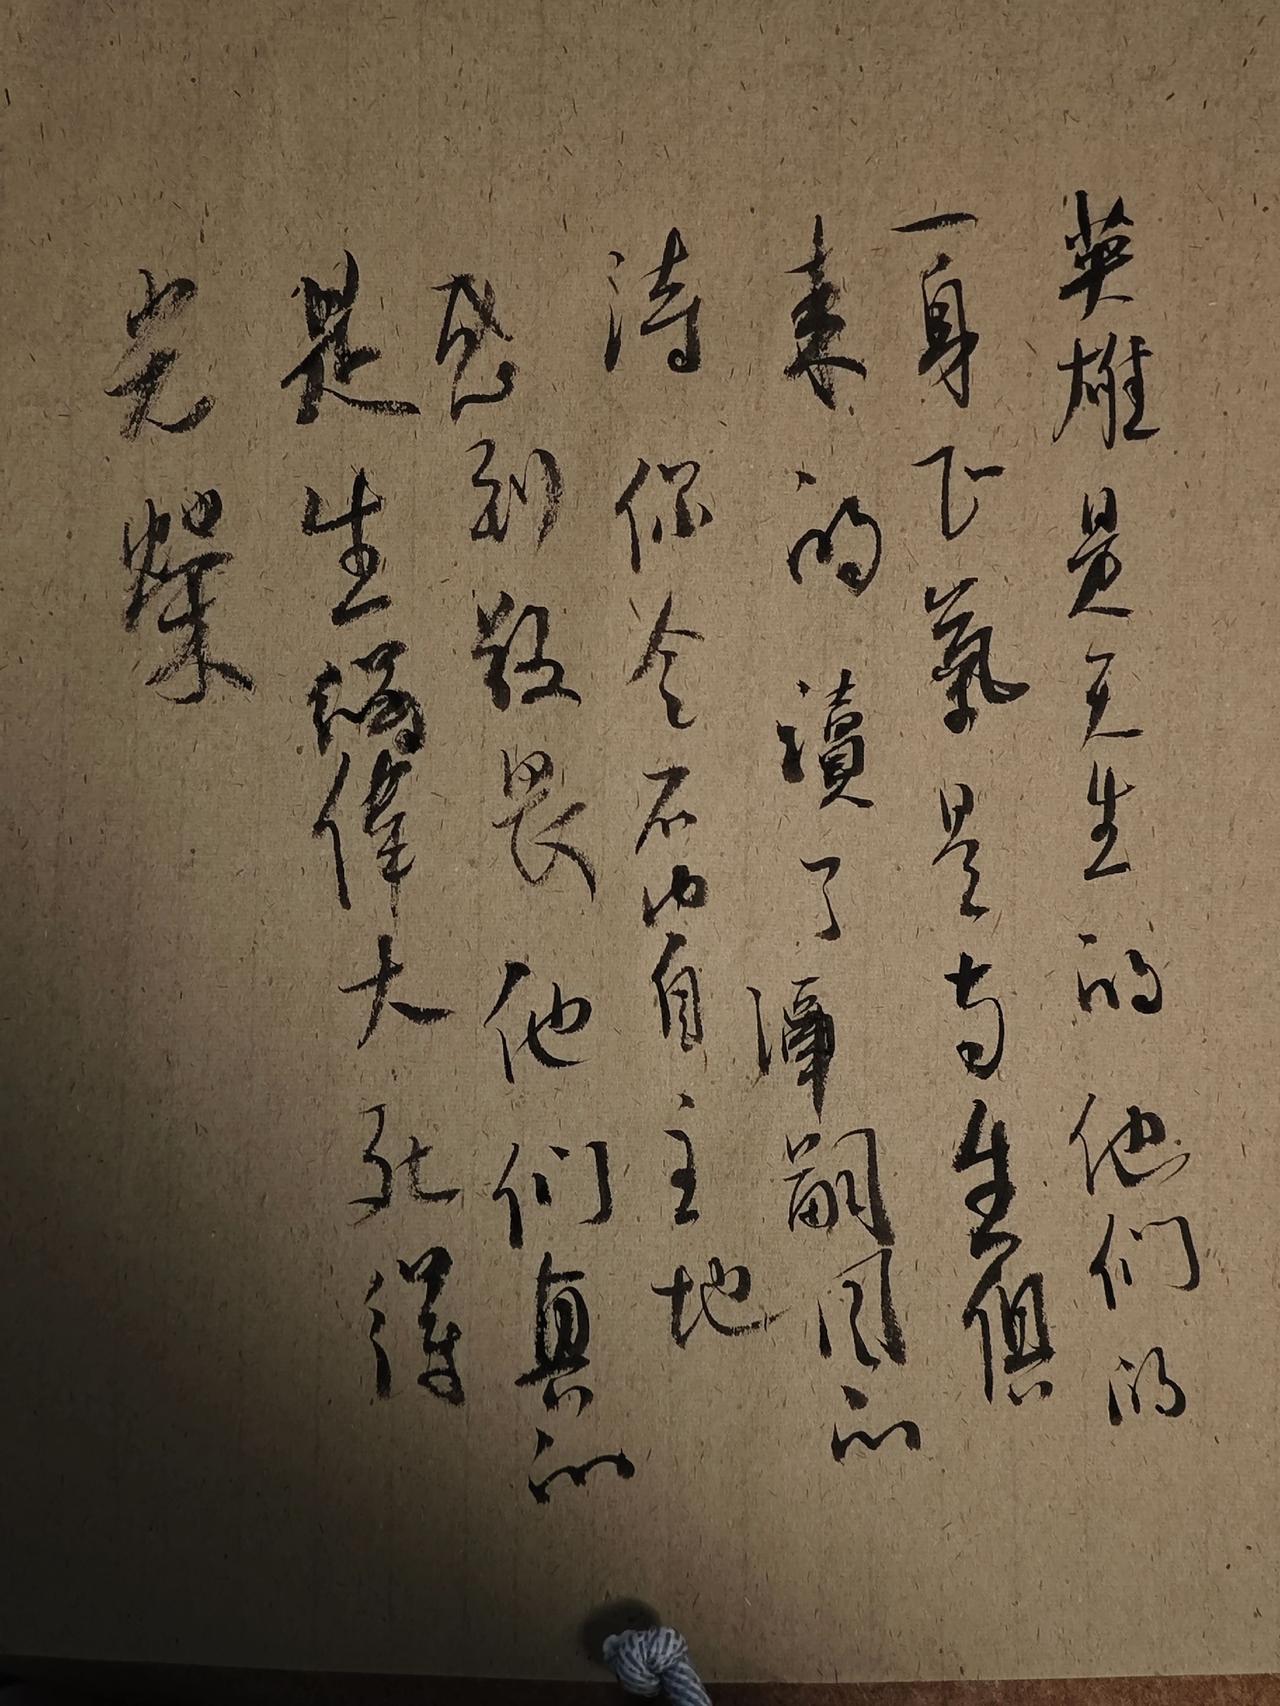 英雄是天生的他们的
一身正氣是与生俱
来的讀了譚嗣同的
诗你会不由自主地
感到敬畏他们真的
是生得偉大死得
光榮